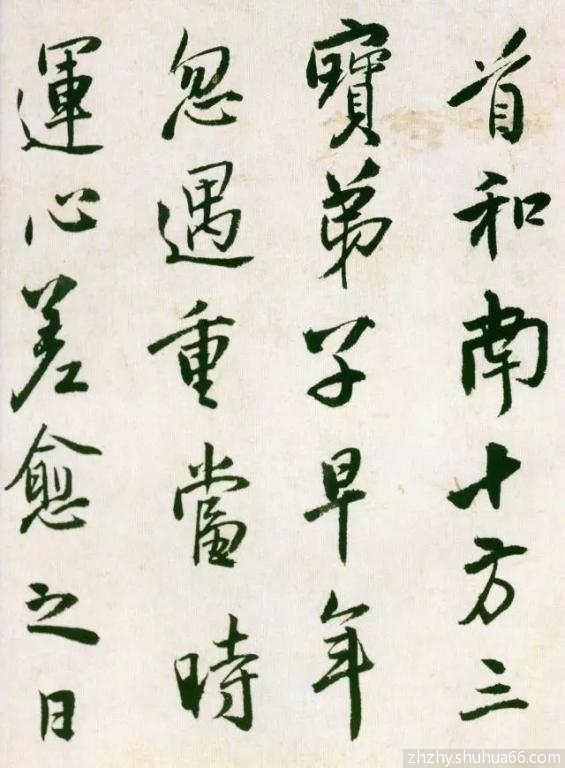 首和南十方三
寶弟子早年
忽遇重當時
運心差愈之日
zhzhy.shuhua66.com